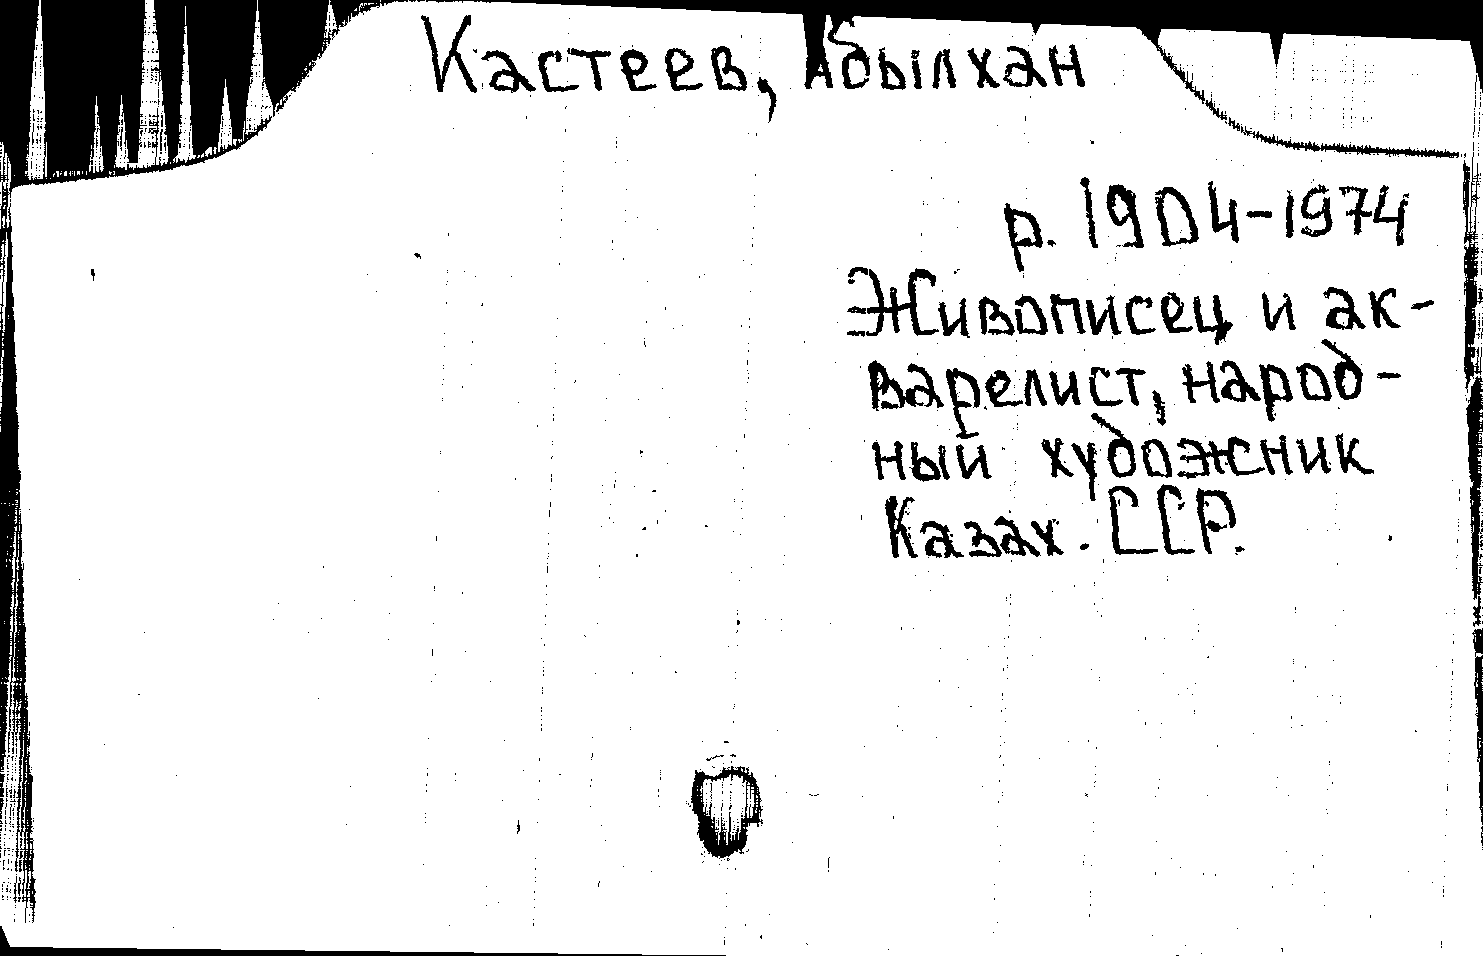 Кастеев, Абылхан
р. 1904-1974
Живописец и ак-
варелист, народ-
ный художник
Казах. ССР.